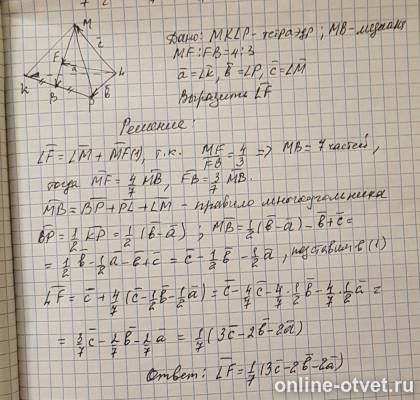 Дано: MKLP - тетраэдр; MB - медиана
MF:FB=4:3
a̅=L̅K̅, b̅=L̅P̅, c̅=L̅M̅
Выразить L̅F̅
Решение:
L̅F̅ = L̅M̅ + M̅F̅(1), т.к. MF/FB = 4/3 => MB = 7 частей,
тогда M̅F̅ = 4/7 M̅B̅, F̅B̅ = 3/7 M̅B̅.
M̅B̅ = B̅P̅ + P̅L̅ + L̅M̅ - правило многоугольника
B̅P̅ = 1/2 K̅P̅ = 1/2 (b̅-a̅); M̅B̅ = 1/2(b̅-a̅) - b̅ + c̅ =
= 1/2 b̅ - 1/2 a̅ - b̅ + c̅ = c̅ - 1/2 b̅ - 1/2 a̅, подставим в (1)
L̅F̅ = c̅ + 4/7 (c̅ - 1/2 b̅ - 1/2 a̅) = c̅ - 4/7 c̅ - 4/7 · 1/2 b̅ - 4/7 · 1/2 a̅ =
= 3/7 c̅ - 2/7 b̅ - 2/7 a̅ = 1/7 (3c̅ - 2b̅ - 2a̅)
Ответ: L̅F̅ = 1/7 (3c̅ - 2b̅ - 2a̅)
M
c̅
F
a̅
K
L
B
b̅
online-otvet.ru